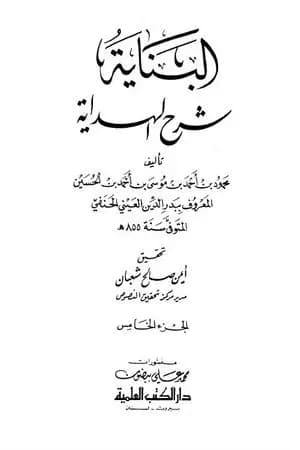 البناية
شرح الهداية
تأليف
محمود بن أحمد بن موسى بن أحمد بن الحسين
المعروف ببدر الدين العيني الحنفي
المتوفى سنة ٨٥٥ هـ
تحقيق
أيمن صالح شعبان
مدير مركز تحقيق النصوص
الجزء الخامس
منشورات
محمد علي بيضون
دار الكتب العلمية
بيروت - لبنان